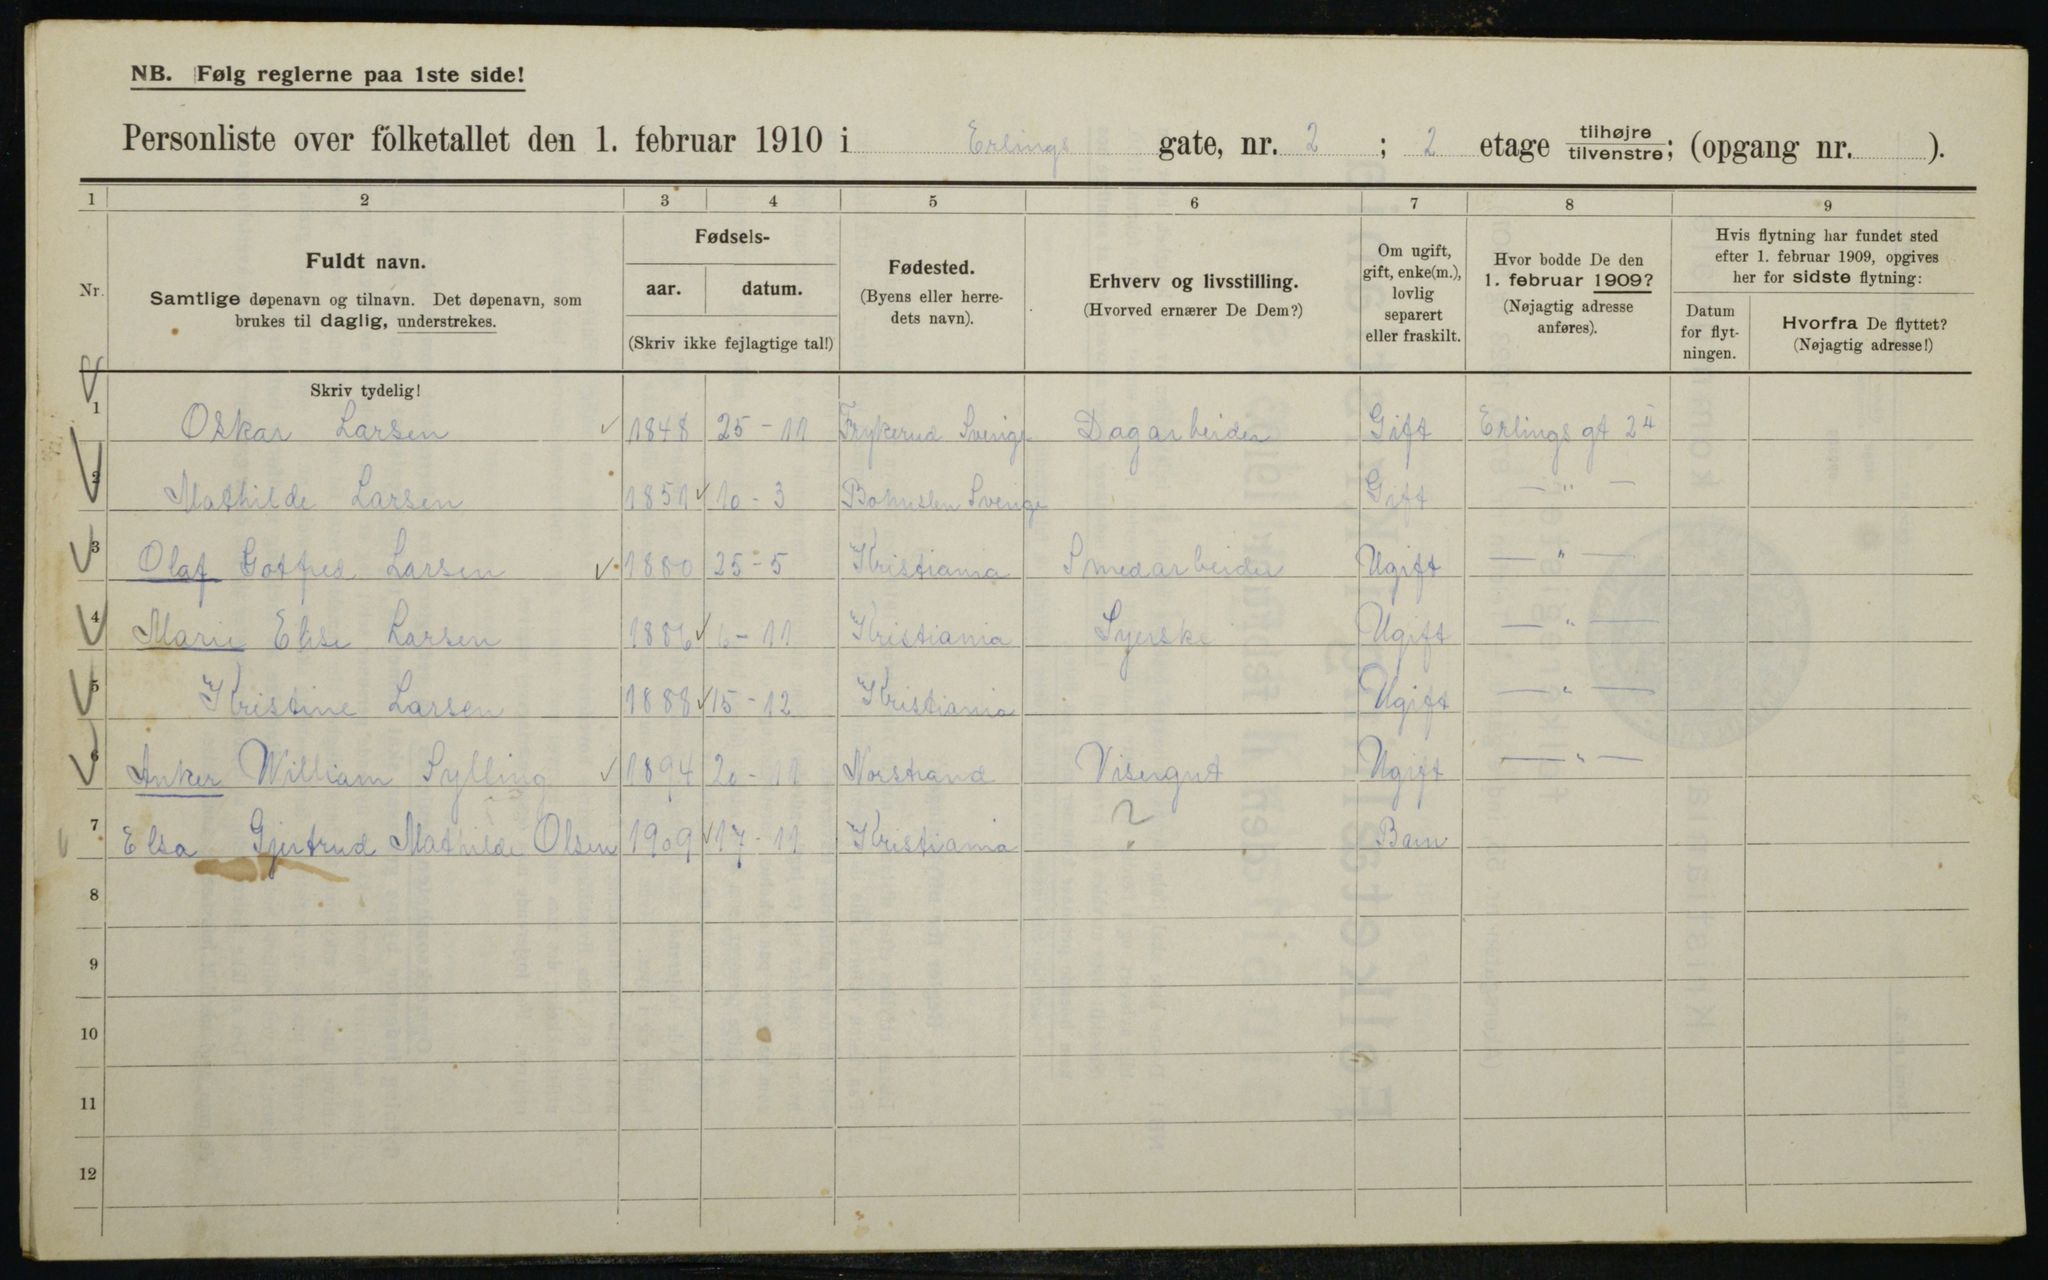 NB. Følg reglerne paa 1ste side!
Personliste over folketallet den 1. februar 1910 i Erlings gate, nr. 2 ; 2 etage tilhøjre tilvenstre; (opgang nr. ).
1 2 3 4 5 6 7 8 9
Nr.
Fuldt navn.
Samtlige døpenavn og tilnavn. Det døpenavn, som
brukes til daglig, understrekes.
Fødsels-
aar. datum.
(Skriv ikke fejlagtige tal!)
Fødested.
(Byens eller herre-
dets navn).
Erhverv og livsstilling.
(Hvorved ernærer De Dem?)
Om ugift,
gift, enke(m.),
lovlig
separert
eller fraskilt.
Hvor bodde De den
1. februar 1909?
(Nøjagtig adresse
anføres).
Hvis flytning har fundet sted
efter 1. februar 1909, opgives
her for sidste flytning:
Datum
for flyt-
ningen.
Hvorfra De flyttet?
(Nøjagtig adresse!)
Skriv tydelig!
1 Oskar Larsen 1848 25-11 Frykerud Sverige Dagarbeider Gift Erlings gt 2
2 Mathilde Larsen 1851 10-3 Bohuslen Sverige Gift — " —
3 Olaf Gotfred Larsen 1880 25-5 Kristiania Smedarbeider Ugift — " —
4 Marie Elise Larsen 1886 6-11 Kristiania Syerske Ugift — " —
5 Kristine Larsen 1888 15-12 Kristiania Ugift — " —
6 Anker William Sylling 1894 20-11 Norstrand Visergut Ugift — " —
7 Elsa Gjertrud Mathilde Olsen 1909 17-11 Kristiania " Barn
8
9
10
11
12